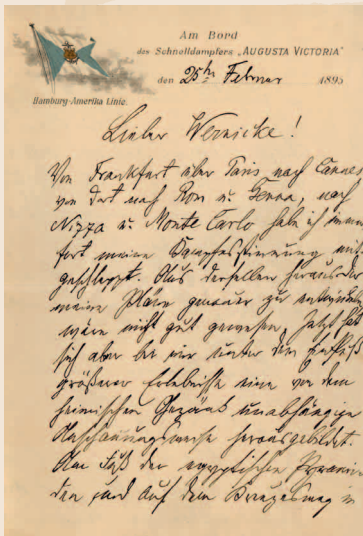 Am Bord
des Schnelldampfers „AUGUSTA VICTORIA"
den 25ten Februar 1895
Hamburg-Amerika Linie.
Lieber Wernicke!
Von Frankfurt über Paris nach Cannes,
von dort nach Rom u. Genua, nach
Nizza u. Monte Carlo habe ich immer
fort meine Kampfesstimmung mit
geschleppt. Aus derselben heraus Der
meine Pläne genauer zu entwickeln
wäre nicht gut gewesen. Jetzt hat
sich aber bei mir unter dem Einfluß
größerer Erlebnisse eine von dem
heimischen Gezänk unabhängige
Anschauungsweise herausgebildet.
Am Fuß der egyptischen Pyrami
den und auf dem Kreuzesweg